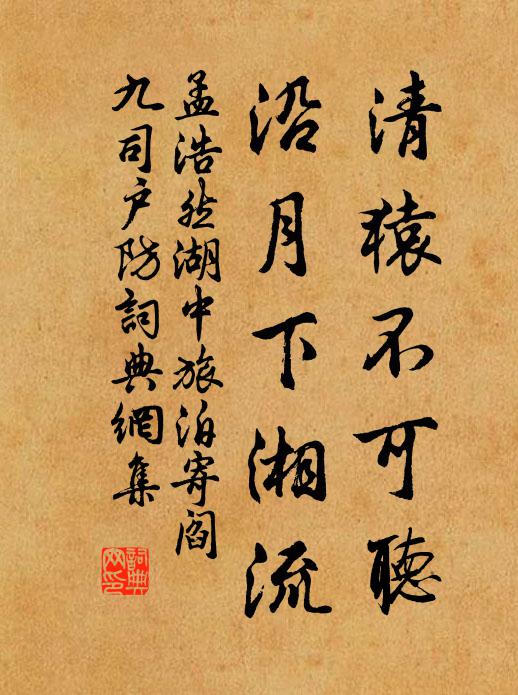 清猿不可聽
沿月下湘流
孟浩然湖中旅泊寄閻
九司戶防詞典網集
詞典網印